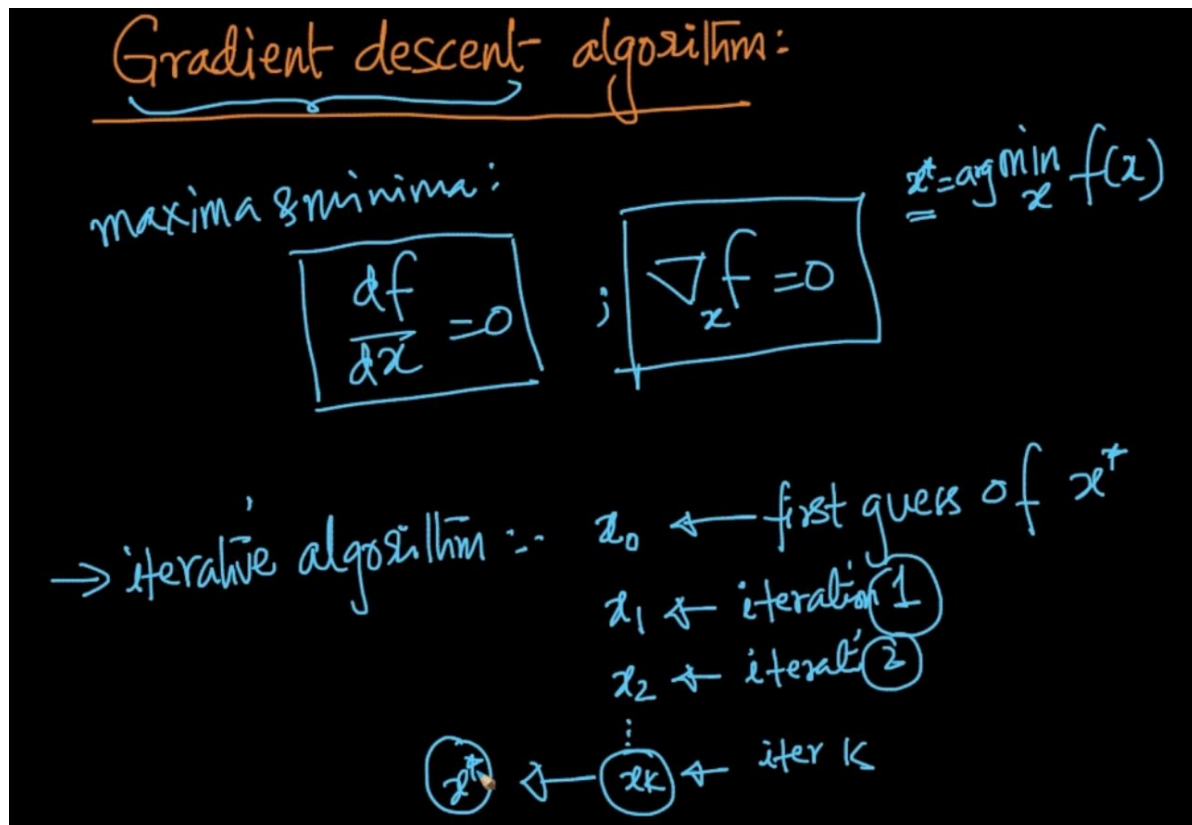 Gradient descent algorithm:
maxima & minima:
x* = arg min f(x)
x
df
dx
=0 ; ∇ₓf =0
→ iterative algorithm :- x₀ ← first guess of x*
x₁ ← iteration 1
x₂ ← iterati 2
⋮
x* ← xₖ ← iter K